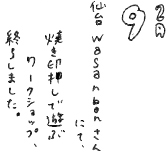 2月
9
仙台wasanbonさん
にて、
焼き印押して遊ぶ
ワークショップ、
終了しました。